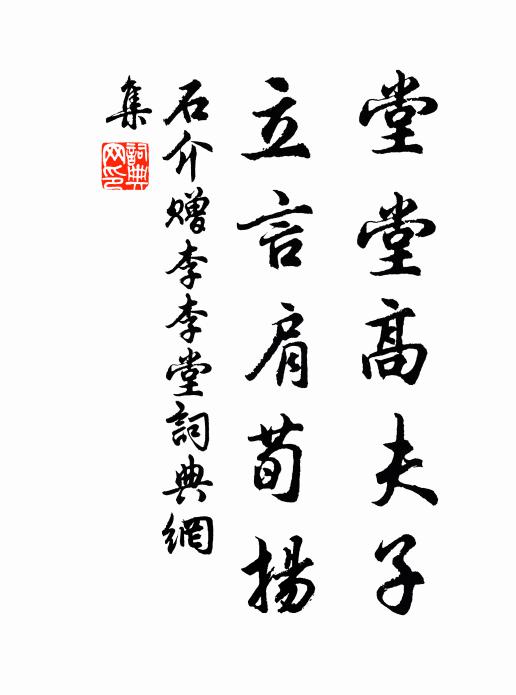 堂堂高夫子
立言肩荀揚
石介贈李李堂詞典網
集
詞典網印